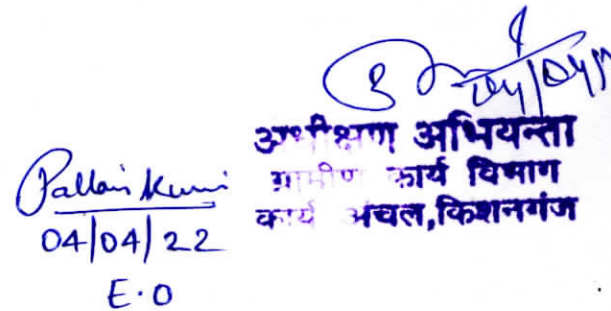 04/04/
अधीक्षण अभियन्ता
ग्रामीण कार्य विभाग
कार्य अंचल,किशनगंज
Pallavi Kumari
04/04/22
E.O